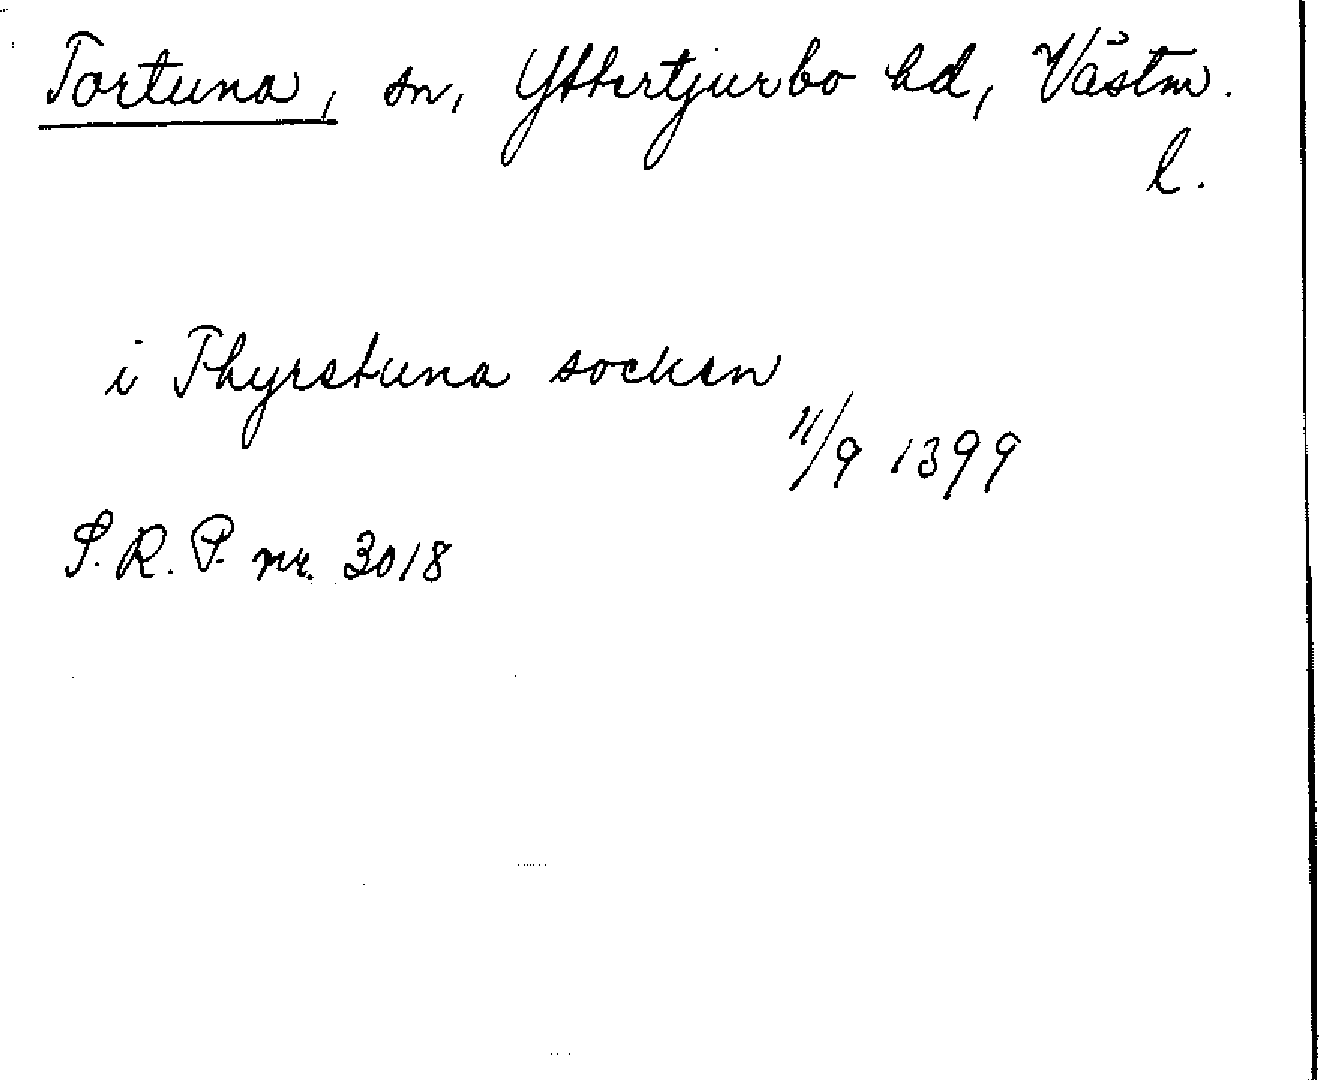 Tortuna, sn, Yttertjurbo hd, Västm.
l.
i Thyrstuna socken
11/9 1399
S.R.P. nr. 3018